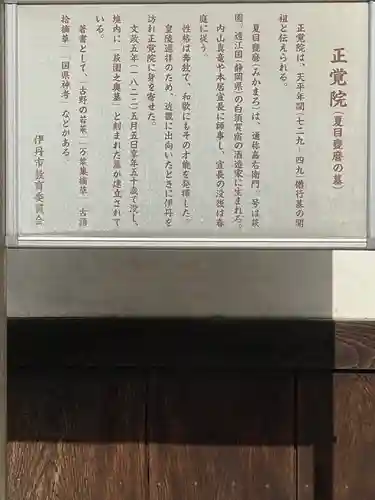 正覚院(夏目甕麿の墓)
正覚院は、天平年間(七二九〜四九)僧行基の開
祖と伝えられる。
夏目甕麿(みかまろ)は、通称嘉右衛門。号は萩
園。遠江国(静岡県)の白須賀宿の酒造家に生まれる。
内山真竜や本居宣長に師事し、宣長の没後は春
庭に従う。
性格は奔放で、和歌にもその才能を発揮した。
皇陵巡拝のため、近畿に出向いたときに伊丹を
訪れ正覚院に身を寄せた。
文政五年(一八二二)五月五日享年五十歳で没し、
境内に「萩園之奥墓」と刻まれた墓が建立されて
いる。
著書として、「古野の若菜」「万葉集摘草 古語
拾摘草」「国県神考」などがある。
伊丹市教育委員会